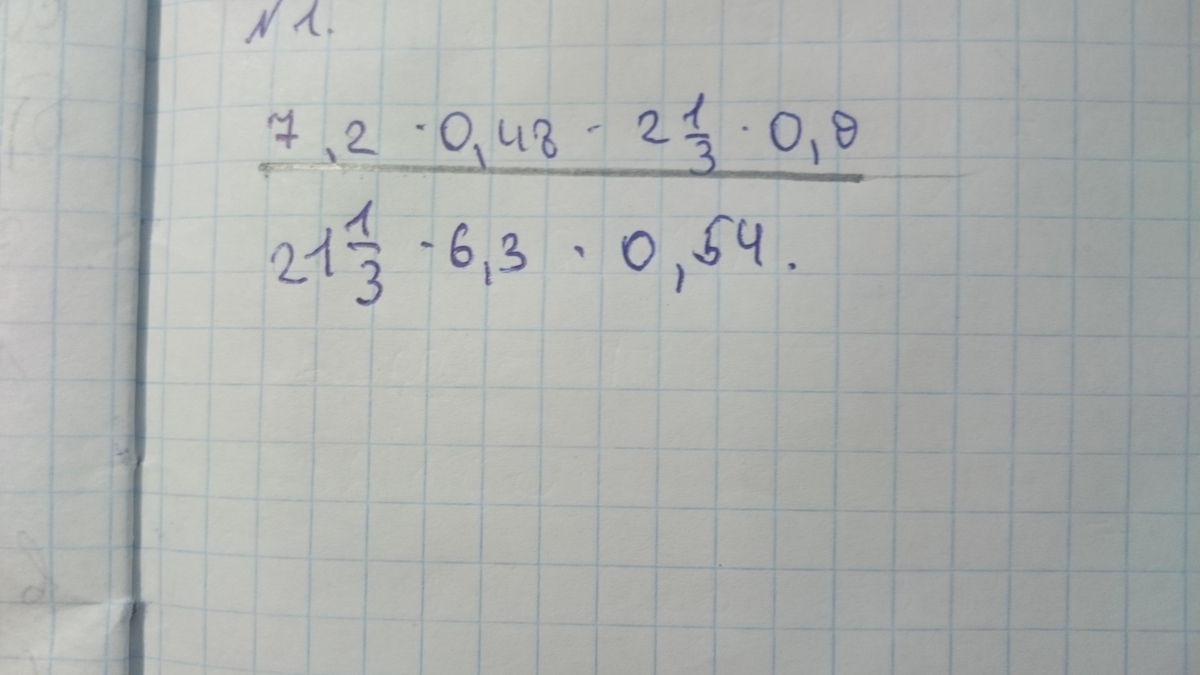 №1.
7,2 · 0,48 · 2 1/3 · 0,8
21 1/3 · 6,3 · 0,54.